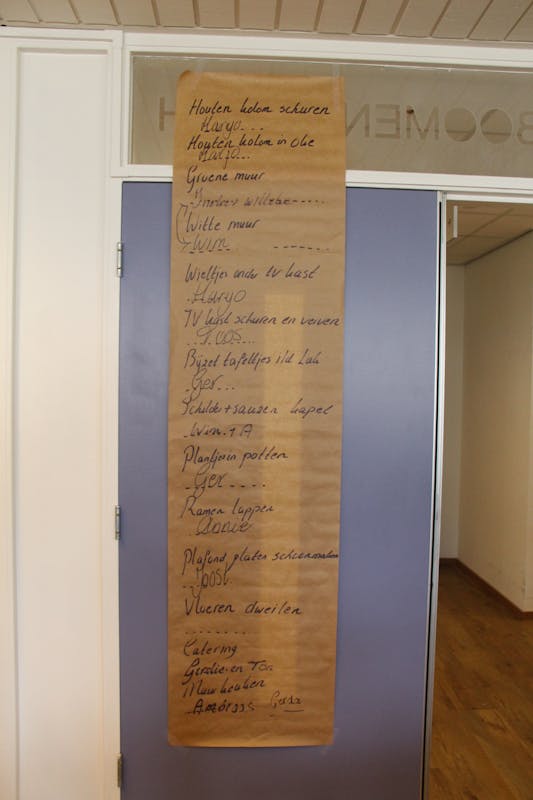 BOOMEN
Houten kolom schuren
Maryo...
Houten kolom in Olie
Maryo...
Groene muur
Witte muur
Wim
Wieltjes onder TV kast
Maryo
TV kast schuren en verven
Bijzet tafeltjes i/d Lak
Ger...
Schilder + sauzen kapel
Wim + A
Plantjes in potten
Ger
Ramen lappen
Annie
Plafond platen schoonmaken
Joost
Vloeren dweilen
Catering
Gerdie en Ton
Muur houten
Gerda